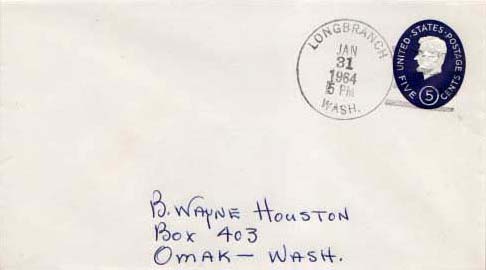 LONGBRANCH
JAN
31
1964
5 PM
WASH.
UNITED·STATES·POSTAGE
FIVE 5 CENTS
B. WAYNE HOUSTON
BOX 403
OMAK - WASH.